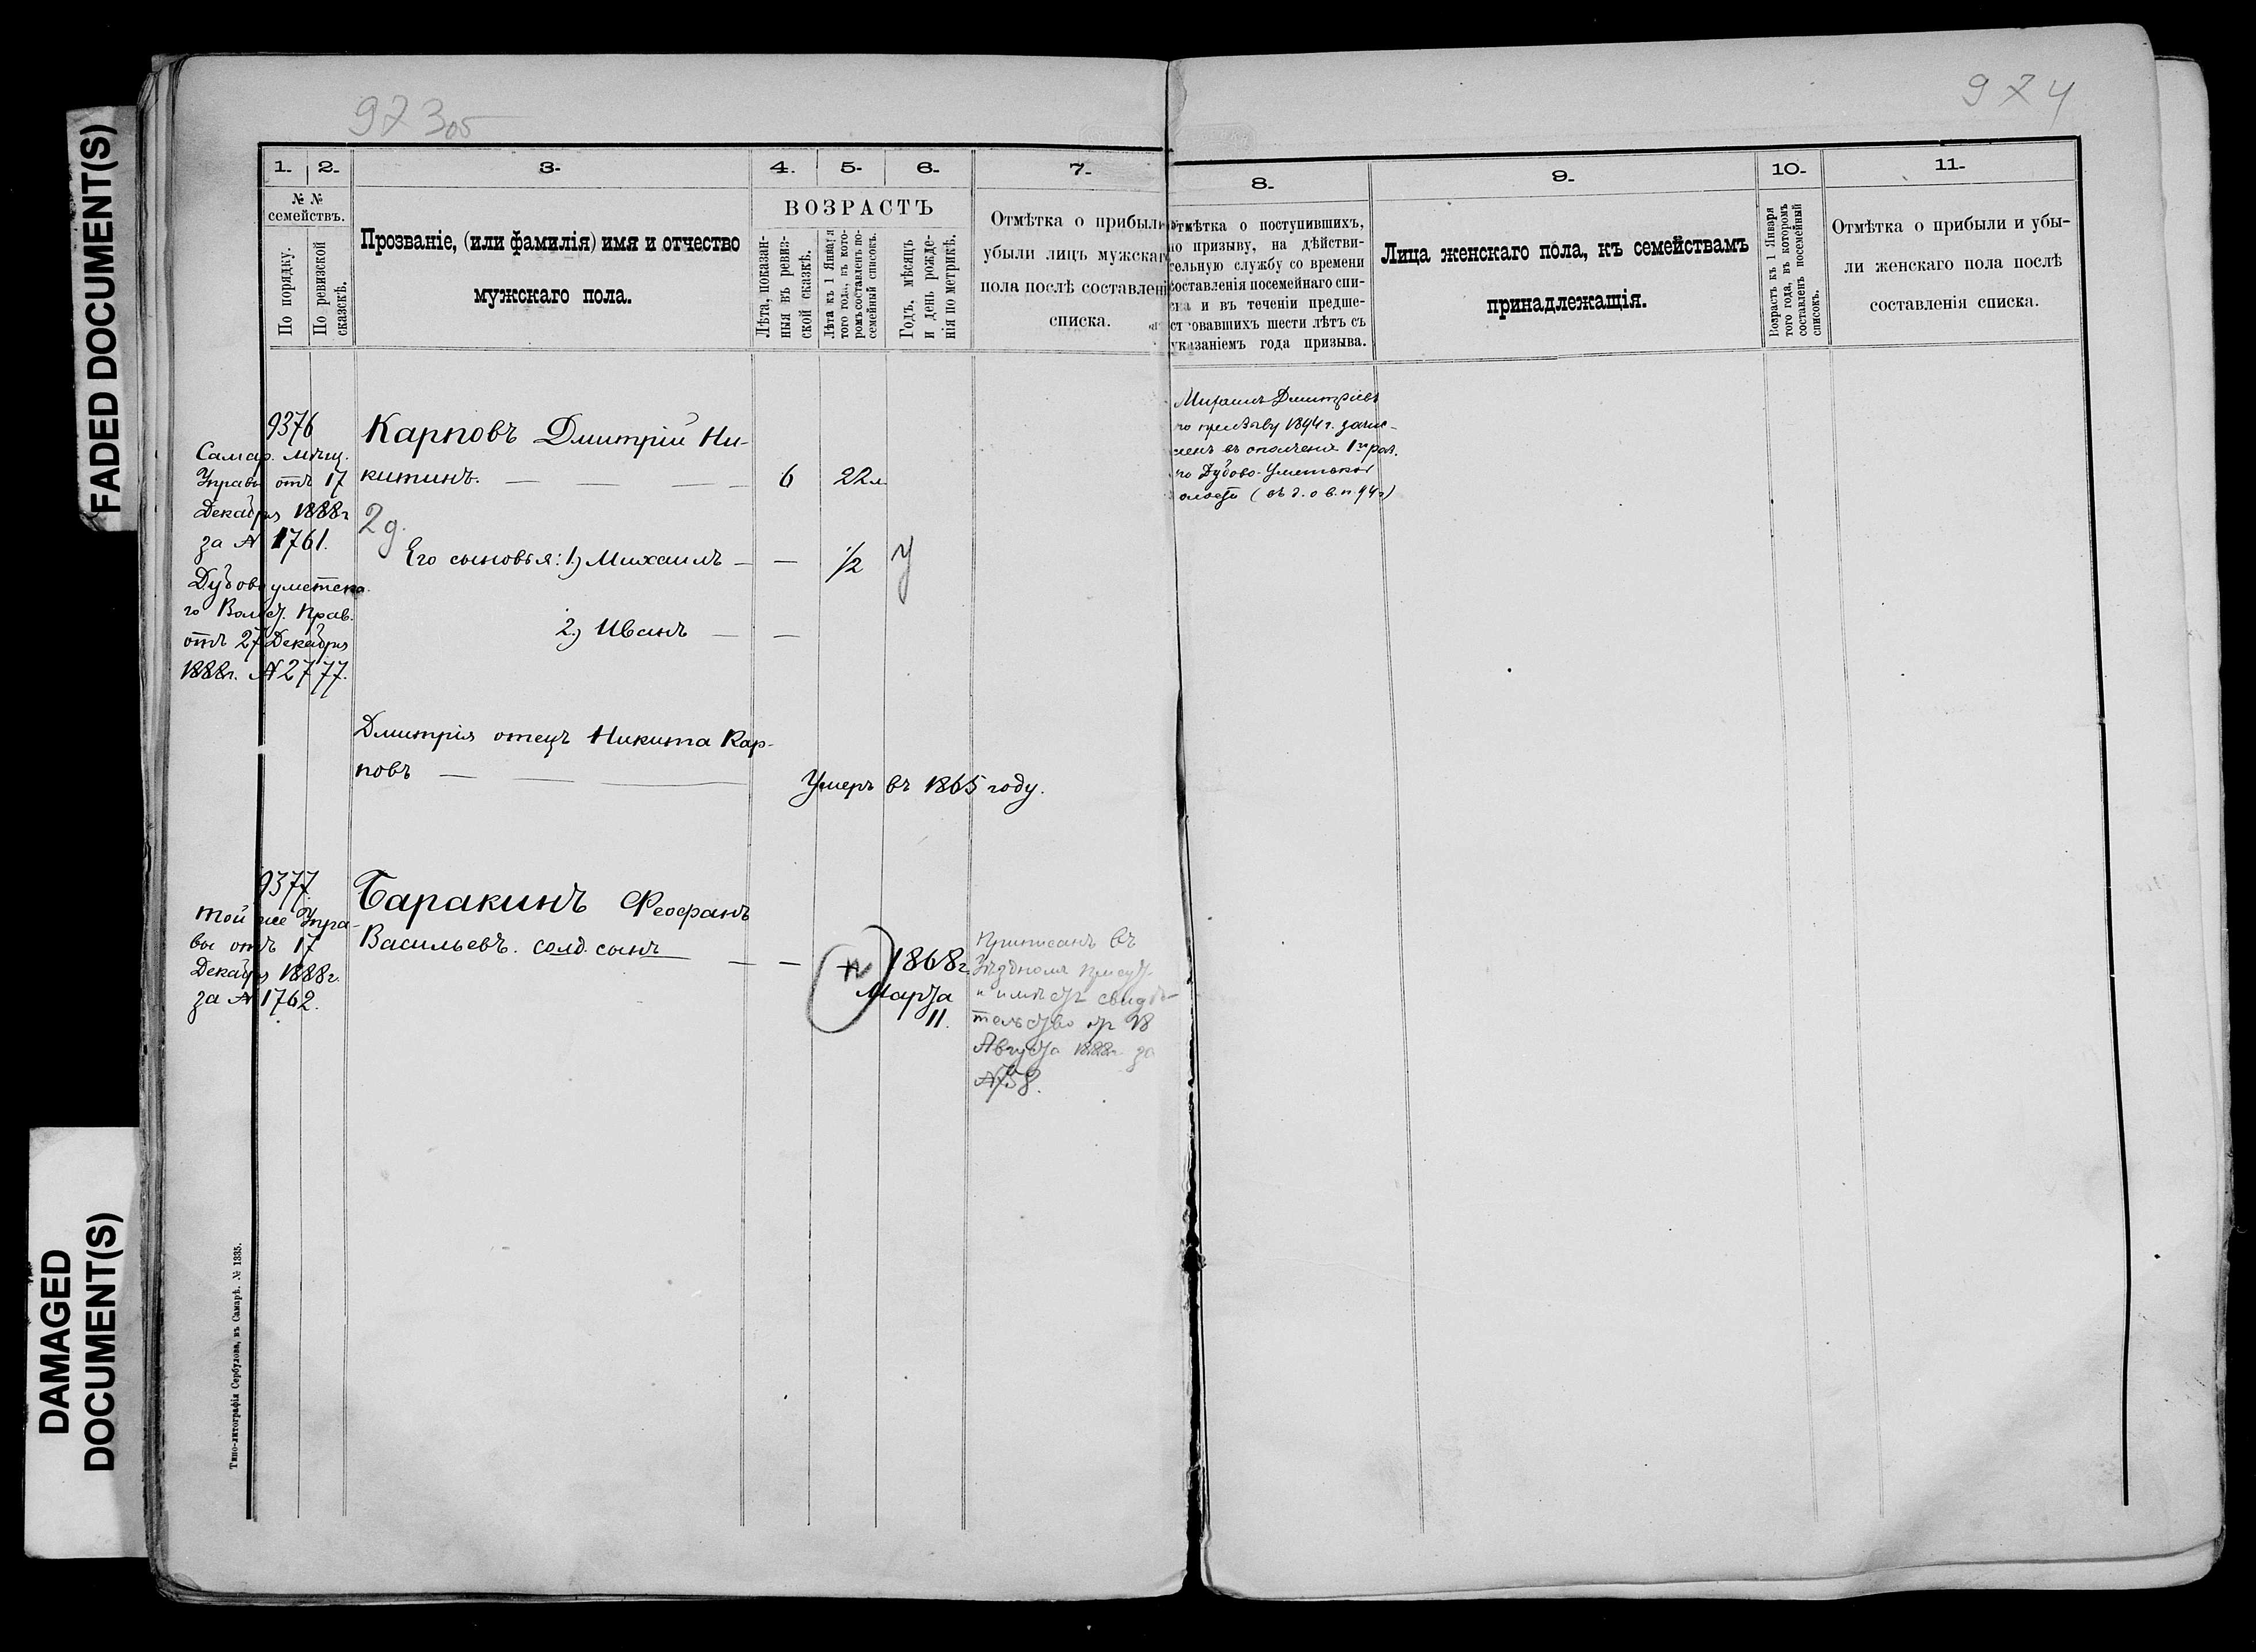 FADED DOCUMENT(S)
DAMAGED
DOCUMENT(S)
973об
974
1.
2.
3.
4.
5.
6.
7.
№ №
семействъ.
По порядку.
По ревизской
сказкѣ.
Прозваніе, (или фамилія) имя и отчество
мужскаго пола.
ВОЗРАСТЪ
Лѣта, показан-
ныя въ ревиз-
ской сказкѣ.
Лѣта къ 1 Января
того года, въ кото-
ромъ составленъ по-
семейный списокъ.
Годъ, мѣсяцъ
и день рожде-
нія по метрикѣ.
Отмѣтка о прибыли
убыли лицъ мужскаг
пола послѣ составлені
списка.
9376
Самар. Мѣщ.
Управы отъ 17
Декабря 1888г
за № 1761.
Дубовоуметска
го Волост. Прав.
отъ 27 Декабря
1888г. № 2777.
Карповъ Дмитрій Ни-
китинъ. — — — —
6
22 л
2 д.
Его сыновья: 1) Михаилъ —
—
1/2
У
2) Иванъ —
—
Дмитрія отецъ Никита Кар-
повъ — — —
Умеръ въ 1865 году.
9377.
Той же Упра-
вы отъ 17
Декабря 1888г.
за № 1762.
Баракинъ Феофанъ
Васильевъ. солд. сынъ — —
1868г.
Марта
11.
Приписанъ въ
Уѣздномъ присут.
и имѣетъ свидѣ-
тельство от 18
Августа 1888г за
№758.
Типо-литографія Сербулова, въ Самарѣ. № 1335.
8.
9.
10.
11.
Отмѣтка о поступившихъ,
по призыву, на дѣйстви-
тельную службу со времени
составленія посемейнаго спи-
ска и въ теченіи предше-
ствовавшихъ шести лѣтъ съ
указаніемъ года призыва.
Лица женскаго пола, къ семействамъ
принадлежащія.
Возрастъ къ 1 Января
того года, въ которомъ
составленъ посемейный
списокъ.
Отмѣтка о прибыли и убы-
ли женскаго пола послѣ
составленія списка.
Михаилъ Дмитріевъ
по призыву 1894 г. зачис-
ленъ въ ополченіе 1го раз.
по Дубово-Уметской
олости